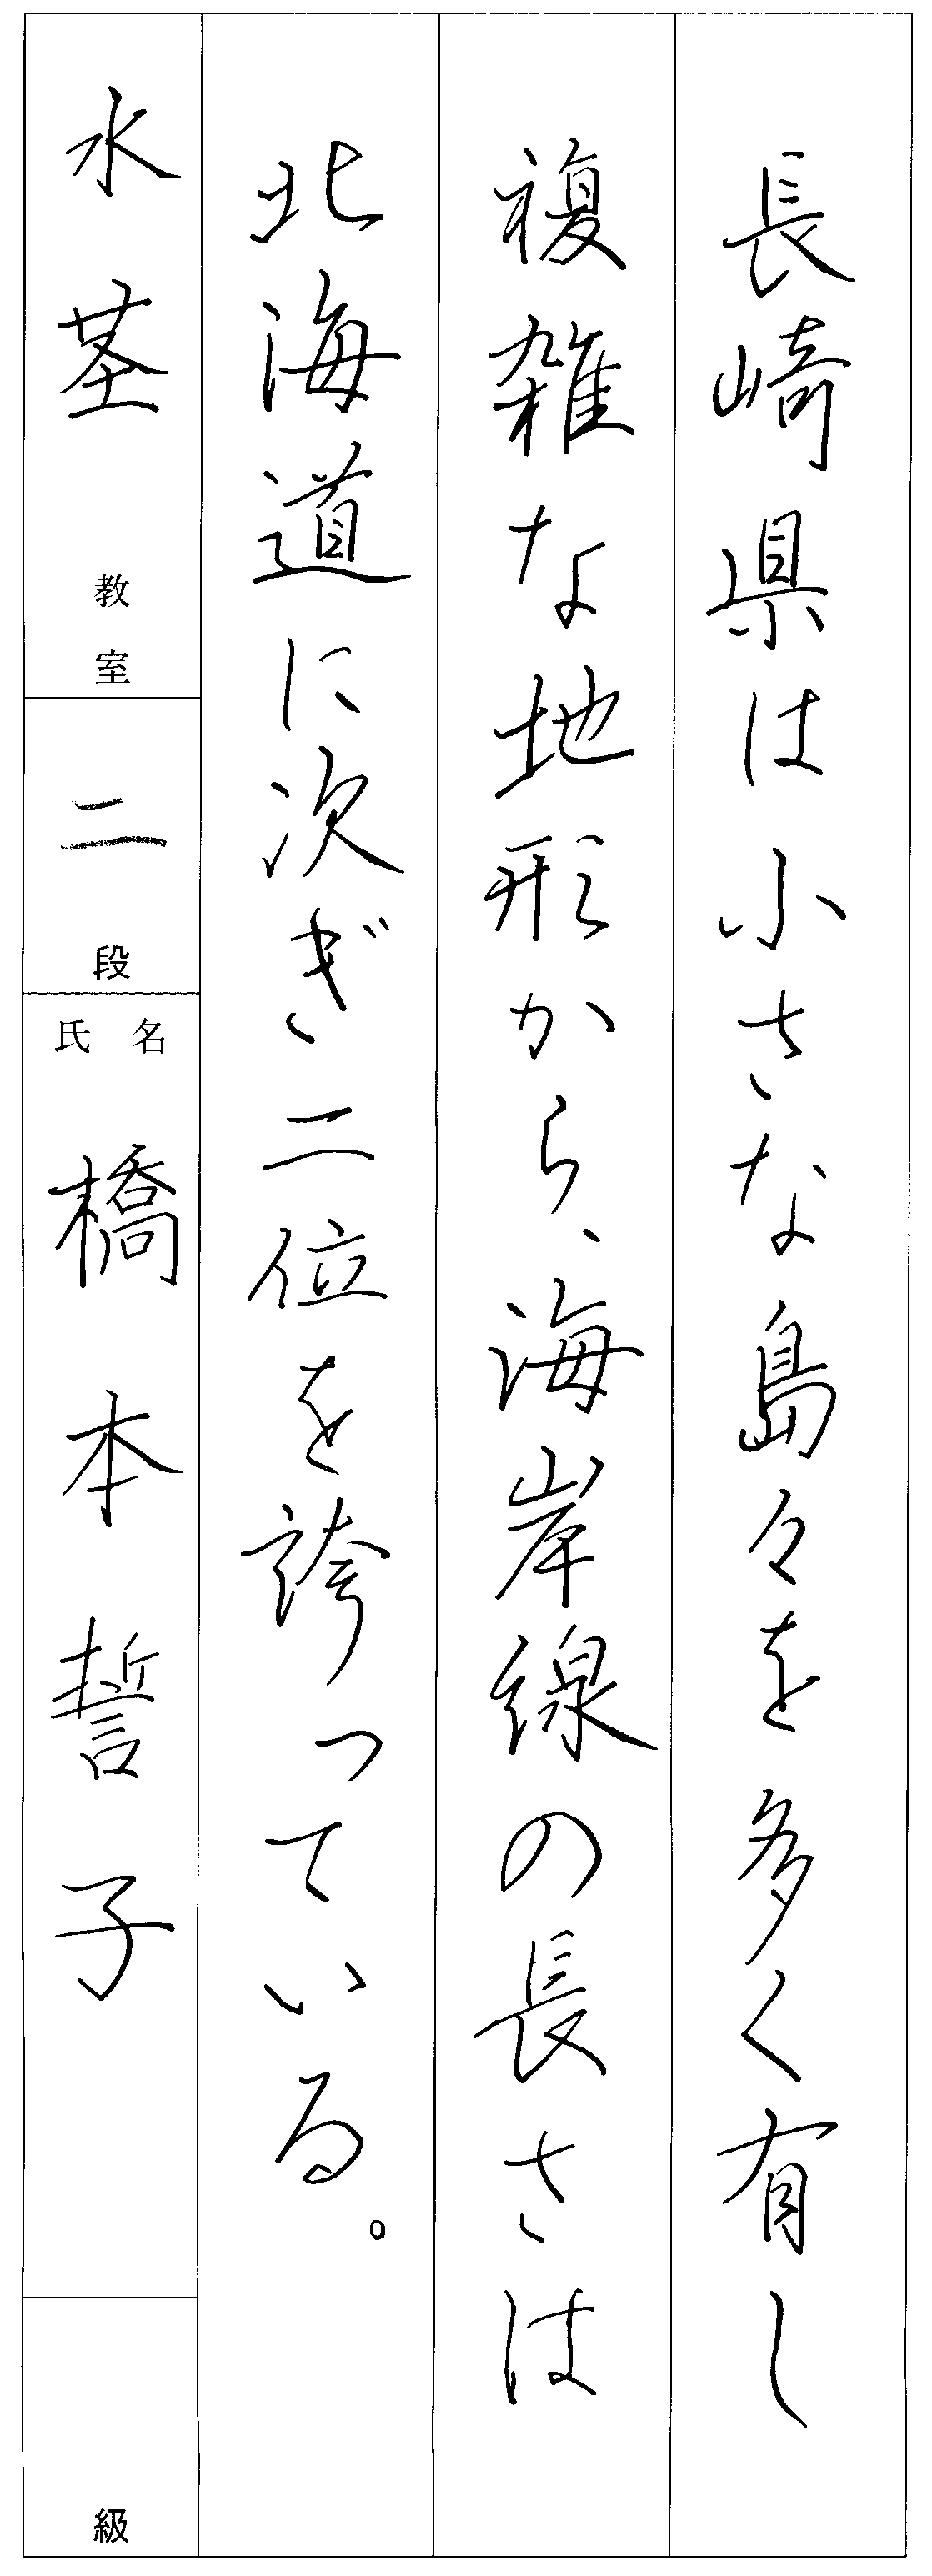 長崎県は小さな島々を多く有し
複雑な地形から、海岸線の長さは
北海道に次ぎ二位を誇っている。
水茎教室
二段
氏名
橋本誓子
級